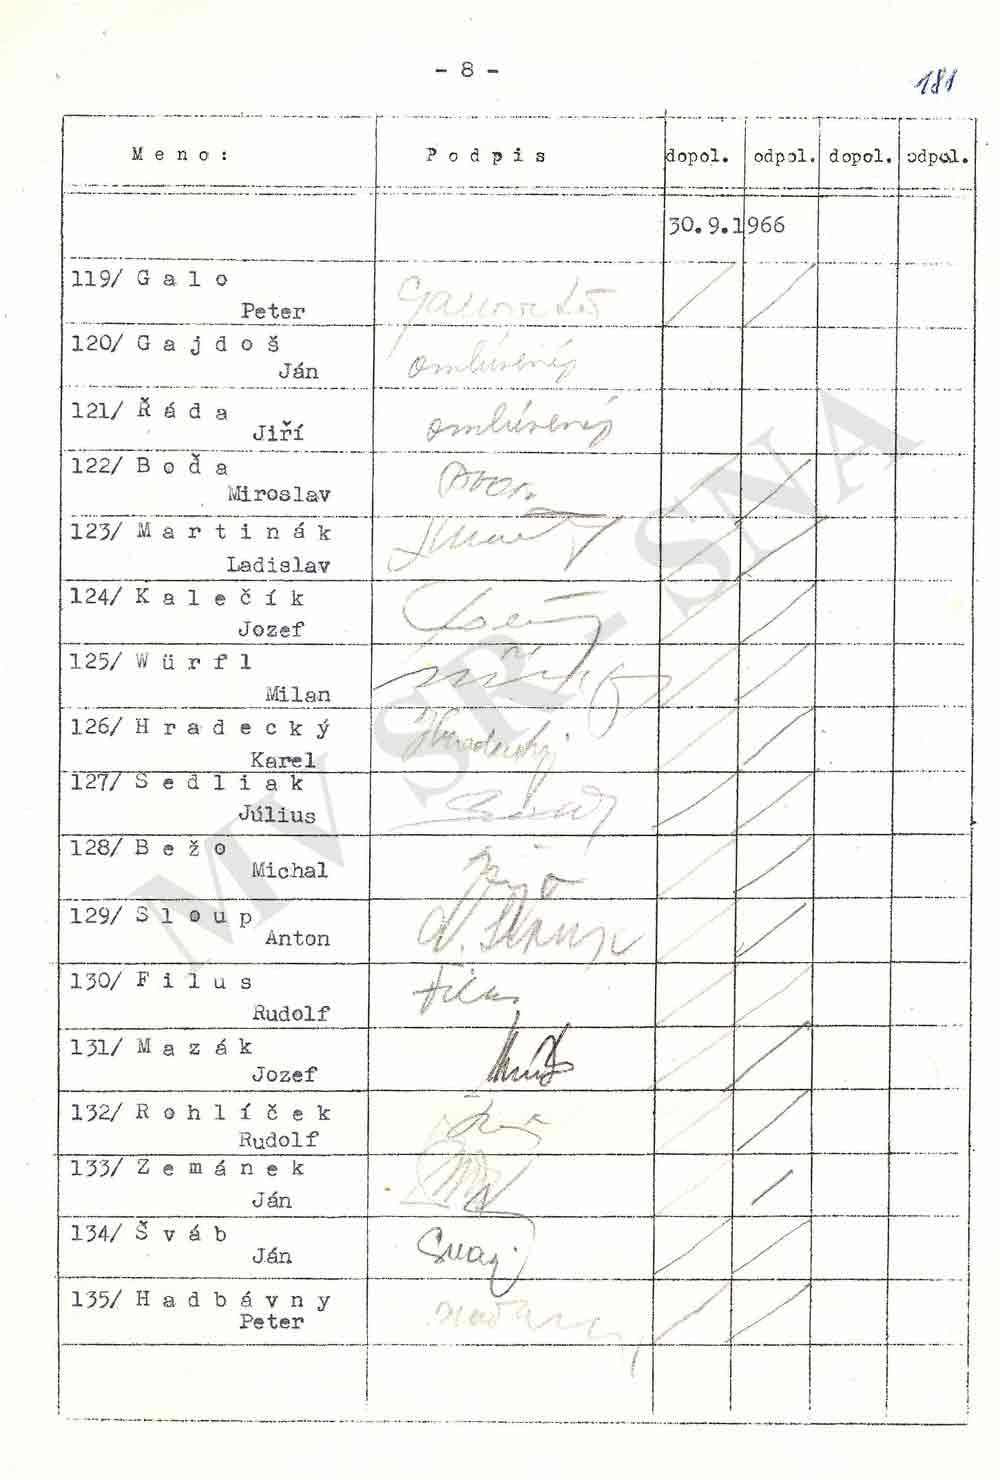 - 8 -
181
M e n o :   P o d p i s   dopol.   odpol.   dopol.   odpol.
30.9.1966
119/ G a l o
Peter
120/ G a j d o š
Ján
omlúvený
121/ Ř á d a
Jiří
omlúvený
122/ B o ď a
Miroslav
123/ M a r t i n á k
Ladislav
124/ K a l e č í k
Jozef
125/ W ü r f l
Milan
126/ H r a d e c k ý
Karel
Hradecký
127/ S e d l i a k
Július
128/ B e ž o
Michal
129/ S l o u p
Anton
A. Sloup
130/ F i l u s
Rudolf
Filus
131/ M a z á k
Jozef
132/ R o h l í č e k
Rudolf
133/ Z e m á n e k
Ján
134/ Š v á b
Ján
135/ H a d b á v n y
Peter
MV SR - SNA